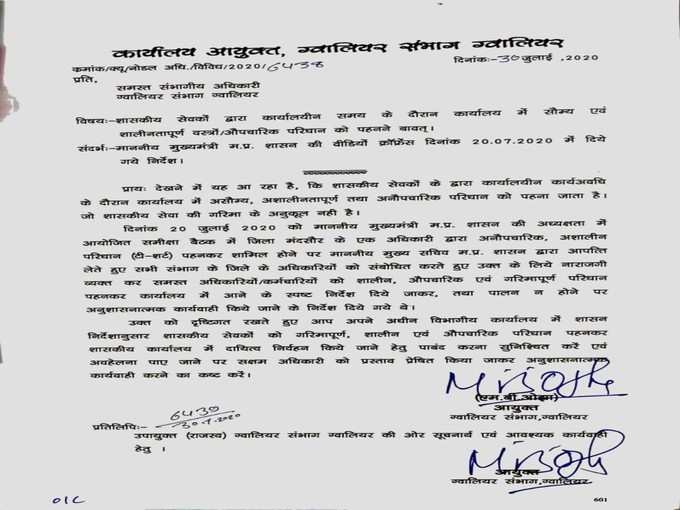 कार्यालय आयुक्त, ग्वालियर संभाग ग्वालियर
क्रमांक/क्यू/नोडल अधि./विविध/2020/6438
दिनांकः-30 जुलाई ,2020
प्रति,
समस्त संभागीय अधिकारी
ग्वालियर संभाग ग्वालियर
विषयः-शासकीय सेवकों द्वारा कार्यालयीन समय के दौरान कार्यालय में सौम्य एवं
शालीनतापूर्ण वस्त्रों/औपचारिक परिधान को पहनने बावत्।
संदर्भः-माननीय मुख्यमंत्री म.प्र. शासन की वीडियों क्रॉफ्रेंस दिनांक 20.07.2020 में दिये
गये निर्देश।
प्रायः देखने में यह आ रहा है, कि शासकीय सेवकों के द्वारा कार्यालयीन कार्यअवधि
के दौरान कार्यालय में असौम्य, अशालीनतापूर्ण तथा अनौपचारिक परिधान को पहना जाता है।
जो शासकीय सेवा की गरिमा के अनुकूल नही है।
दिनांक 20 जुलाई 2020 को माननीय मुख्यमंत्री म.प्र. शासन की अध्यक्षता में
आयोजित समीक्षा बैठक में जिला मंदसौर के एक अधिकारी द्वारा अनौपचारिक, अशालीन
परिधान (टी-शर्ट) पहनकर शामिल होने पर माननीय मुख्य सचिव म.प्र. शासन द्वारा आपत्ति
लेते हुए सभी संभाग के जिले के अधिकारियों को संबोधित करते हुए उक्त के लिये नाराजगी
व्यक्त कर समस्त अधिकारियों/कर्मचारियों को शालीन, औपचारिक एवं गरिमापूर्ण परिधान
पहनकर कार्यालय में आने के स्पष्ट निर्देश दिये जाकर, तथा पालन न होने पर
अनुशासनात्मक कार्यवाही किये जाने के निर्देश दिये गये थे।
उक्त को दृष्टिगत रखते हुए आप अपने अधीन विभागीय कार्यालय में शासन
निर्देशानुसार शासकीय सेवकों को गरिमापूर्ण, शालीन एवं औपचारिक परिधान पहनकर
शासकीय कार्यालय में दायित्व निर्वहन किये जाने हेतु पाबंद करना सुनिश्चित करें एवं
अवहेलना पाए जाने पर सक्षम अधिकारी को प्रस्ताव प्रेषित किया जाकर अनुशासनात्मक
कार्यवाही करने का कष्ट करें।
(एम.बी.ओझा)
आयुक्त
ग्वालियर संभाग,ग्वालियर
6439
प्रतिलिपिः- 30.7.2020
उपायुक्त (राजस्व) ग्वालियर संभाग ग्वालियर की ओर सूचनार्थ एवं आवश्यक कार्यवाही
हेतु ।
आयुक्त
ग्वालियर संभाग,ग्वालियर
O1C
601